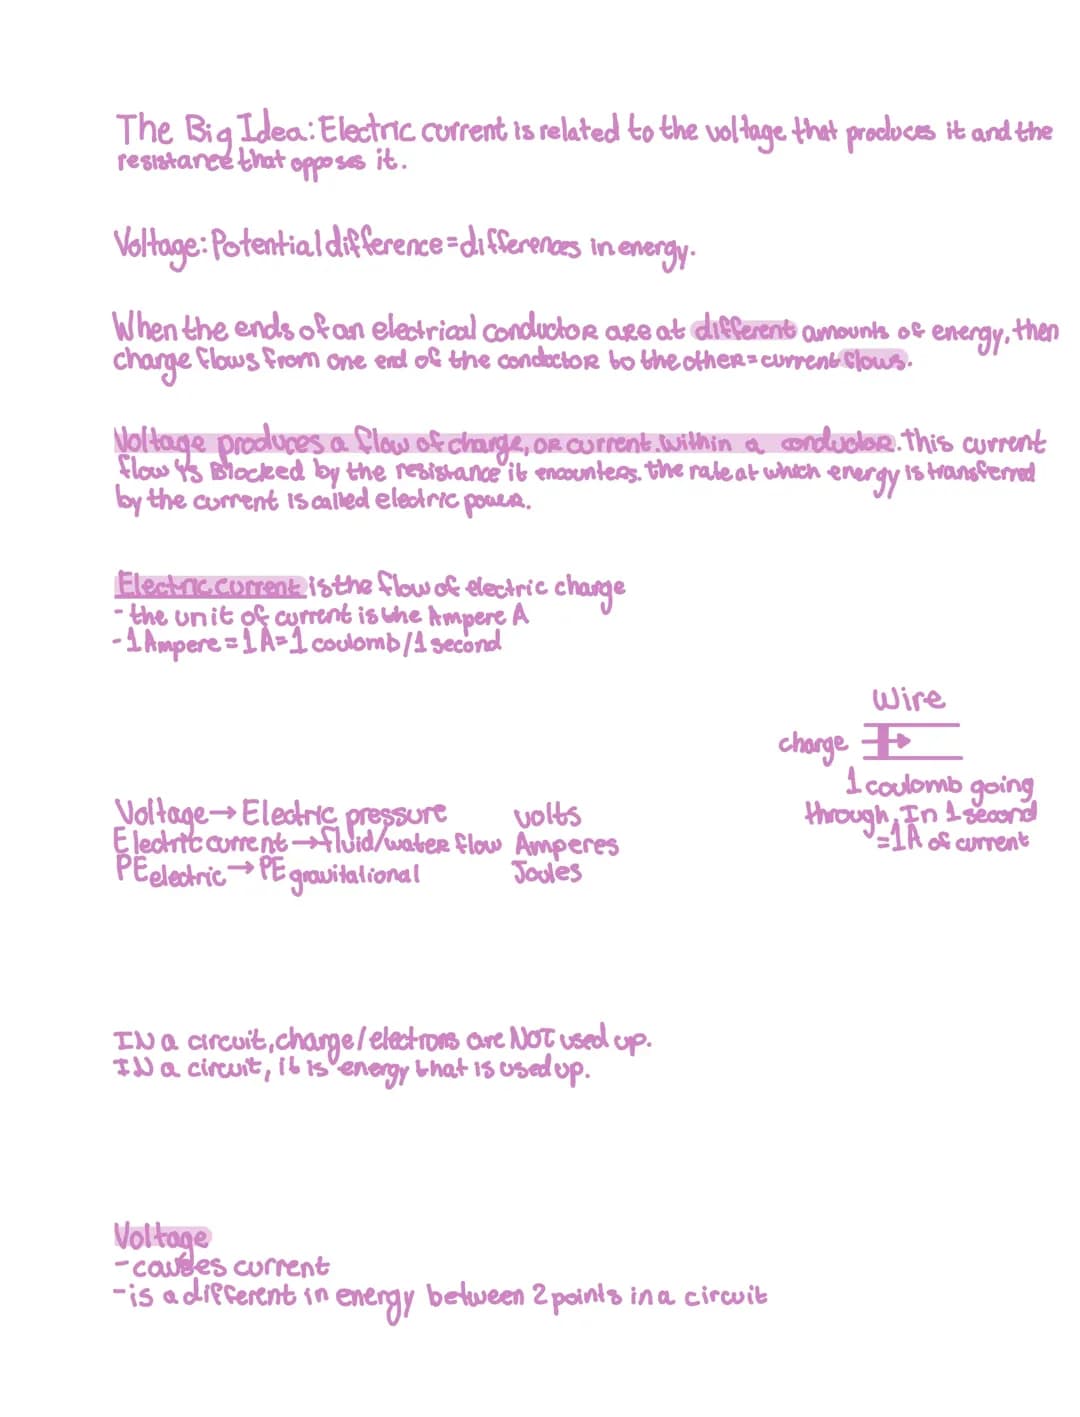 The Big Idea: Electric current is related to the voltage that produces it and the
resistance that opposes it.
Voltage: Potential difference = differences in energy.
When the ends of an electrical conductor are at different amounts of energy, then
charge flows from one end of the conductor to the other = current flows.
Voltage produces a flow of charge, or current within a conductor. This current
flow is Blocked by the resistance it encounters. the rate at which energy is transferred
by the current is called electric power.
Electric current is the flow of electric charge
- the unit of current is the Ampere A
- 1 Ampere = 1A = 1 coulomb/1 second
Wire
charge
1 coulomb going
through, In 1 second
= 1A of current
Voltage → Electric pressure volts
Electric current → fluid/water flow Amperes
PE electric → PE gravitational Joules
IN a circuit, charge/electrons are NOT used up.
IN a circuit, it is energy that is used up.
Voltage
- causes current
- is a different in energy between 2 points in a circuit